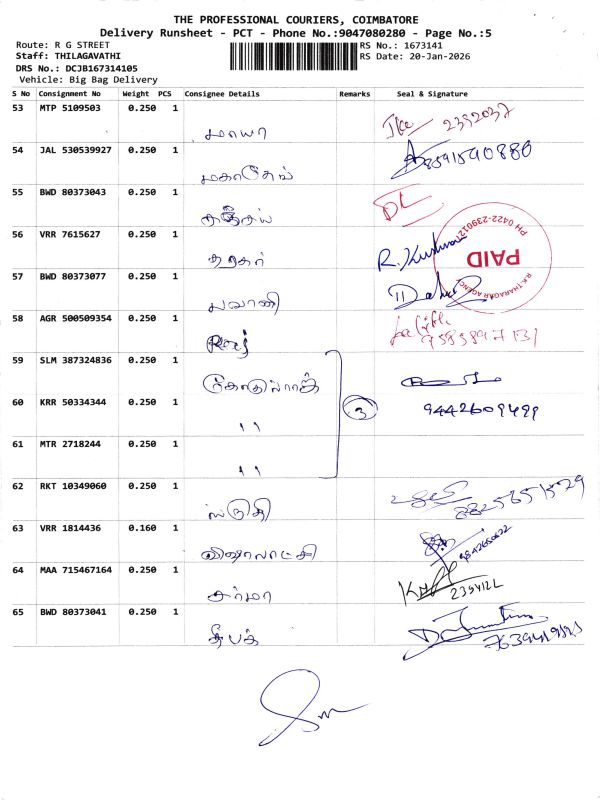 THE PROFESSIONAL COURIERS, COIMBATORE
Delivery Runsheet - PCT - Phone No.:9047080280 - Page No.:5
Route: R G STREET
RS No.: 1673141
Staff: THILAGAVATHI
RS Date: 20-Jan-2026
DRS No.: DCJB167314105
Vehicle: Big Bag Delivery
S No Consignment No Weight PCS Consignee Details Remarks Seal & Signature
53 MTP 5109503 0.250 1
மாயா 2392037
54 JAL 530539927 0.250 1
மகாதேவ் 8591590880
55 BWD 80373043 0.250 1
DL
56 VRR 7615627 0.250 1
R. Kushwa
PH 0422-2390127
PAID
R.K.THARAGAR AGENCY
57 BWD 80373077 0.250 1
பவானி
58 AGR 500509354 0.250 1
Raj 9585897131
59 SLM 387324836 0.250 1
60 KRR 50334344 0.250 1
" 3 9442609499
61 MTR 2718244 0.250 1
"
62 RKT 10349060 0.250 1
ஸ்ருதி
63 VRR 1814436 0.160 1
விஷாலாட்சி
64 MAA 715467164 0.250 1
சர்மா
65 BWD 80373041 0.250 1
தீபக்